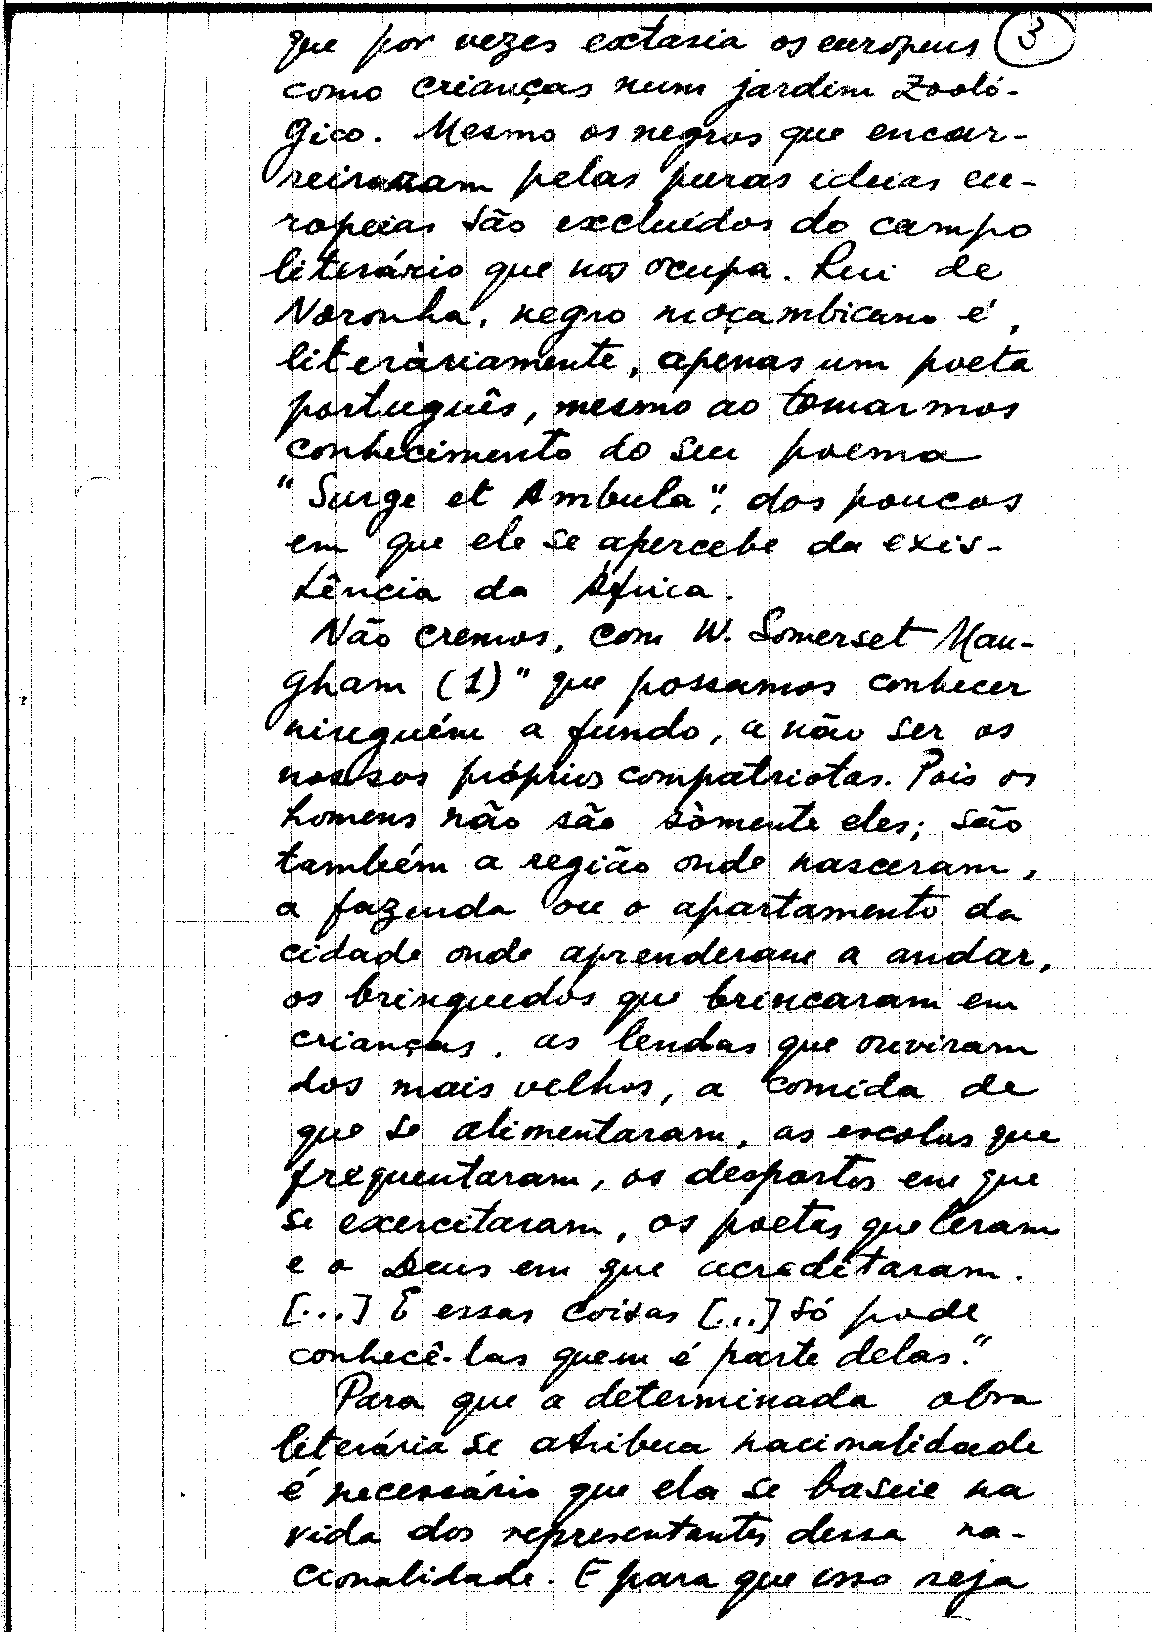 que por vezes extasia os europeus (3)
como crianças num jardim zooló-
gico. Mesmo os negros que encar-
reiraram pelas puras ideias eu-
ropeias são excluídos do campo
literário que nos ocupa. Rui de
Noronha, negro moçambicano é,
literàriamente, apenas um poeta
português, mesmo ao tomarmos
conhecimento do seu poema
"Surge et Ambula", dos poucos
em que ele se apercebe da exis-
tência da África.
Não cremos, com W. Somerset Mau-
gham (1) "que possamos conhecer
ninguém a fundo, a não ser os
nossos próprios compatriotas. Pois os
homens não são sòmente eles; são
também a região onde nasceram,
a fazenda ou o apartamento da
cidade onde aprenderam a andar,
os brinquedos que brincaram em
crianças, as lendas que ouviram
dos mais velhos, a comida de
que se alimentaram, as escolas que
frequentaram, os desportos em que
se exercitaram, os poetas que leram
e o Deus em que acreditaram.
[...] E essas coisas [...] só pode
conhecê-las quem é parte delas."
Para que a determinada obra
literária se atribua nacionalidade
é necessário que ela se baseie na
vida dos representantes dessa na-
cionalidade. E para que isso seja